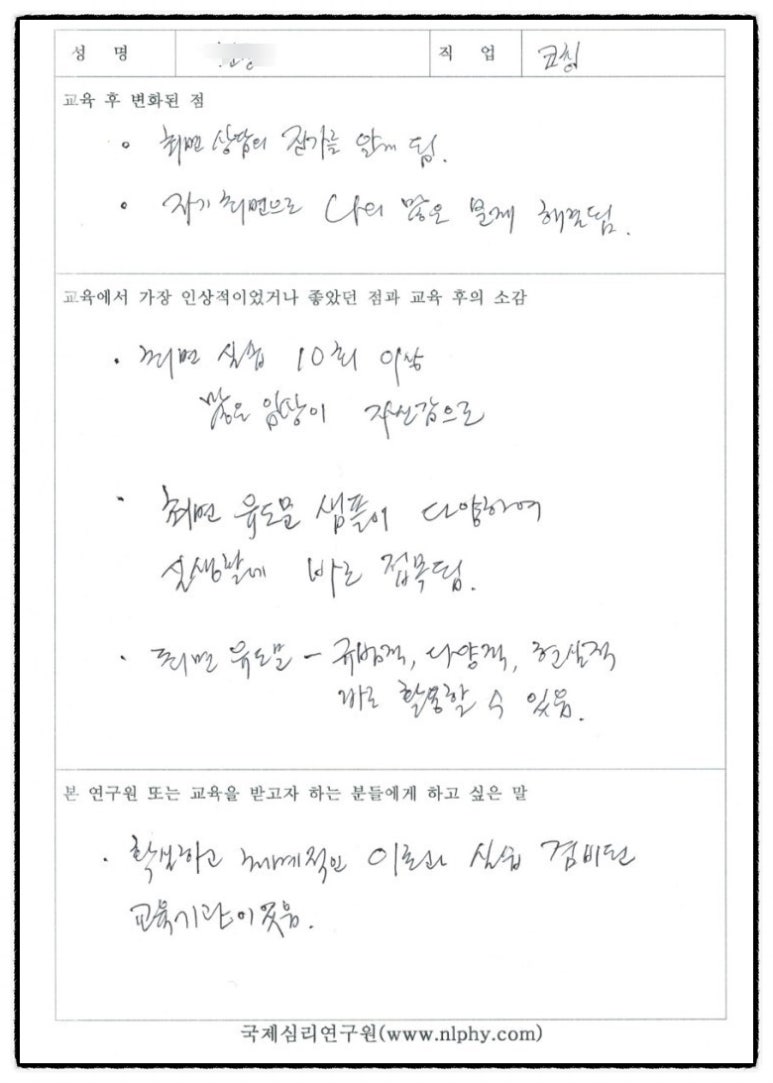 성 명 직 업 코칭
교육 후 변화된 점
• 최면 상담의 진가를 알게 됨.
• 자기 최면으로 나의 많은 문제 해결됨.
교육에서 가장 인상적이었거나 좋았던 점과 교육 후의 소감
• 최면 실습 10회 이상
많은 임상이 자신감으로
• 최면 유도문 샘플이 다양하여
실생활에 바로 접목됨.
• 최면 유도문 - 규범적, 다양적, 현실적
바로 활용할 수 있음.
본 연구원 또는 교육을 받고자 하는 분들에게 하고 싶은 말
• 확실하고 체계적인 이론과 실습 겸비된
교육기관이었음.
국제심리연구원(www.nlphy.com)